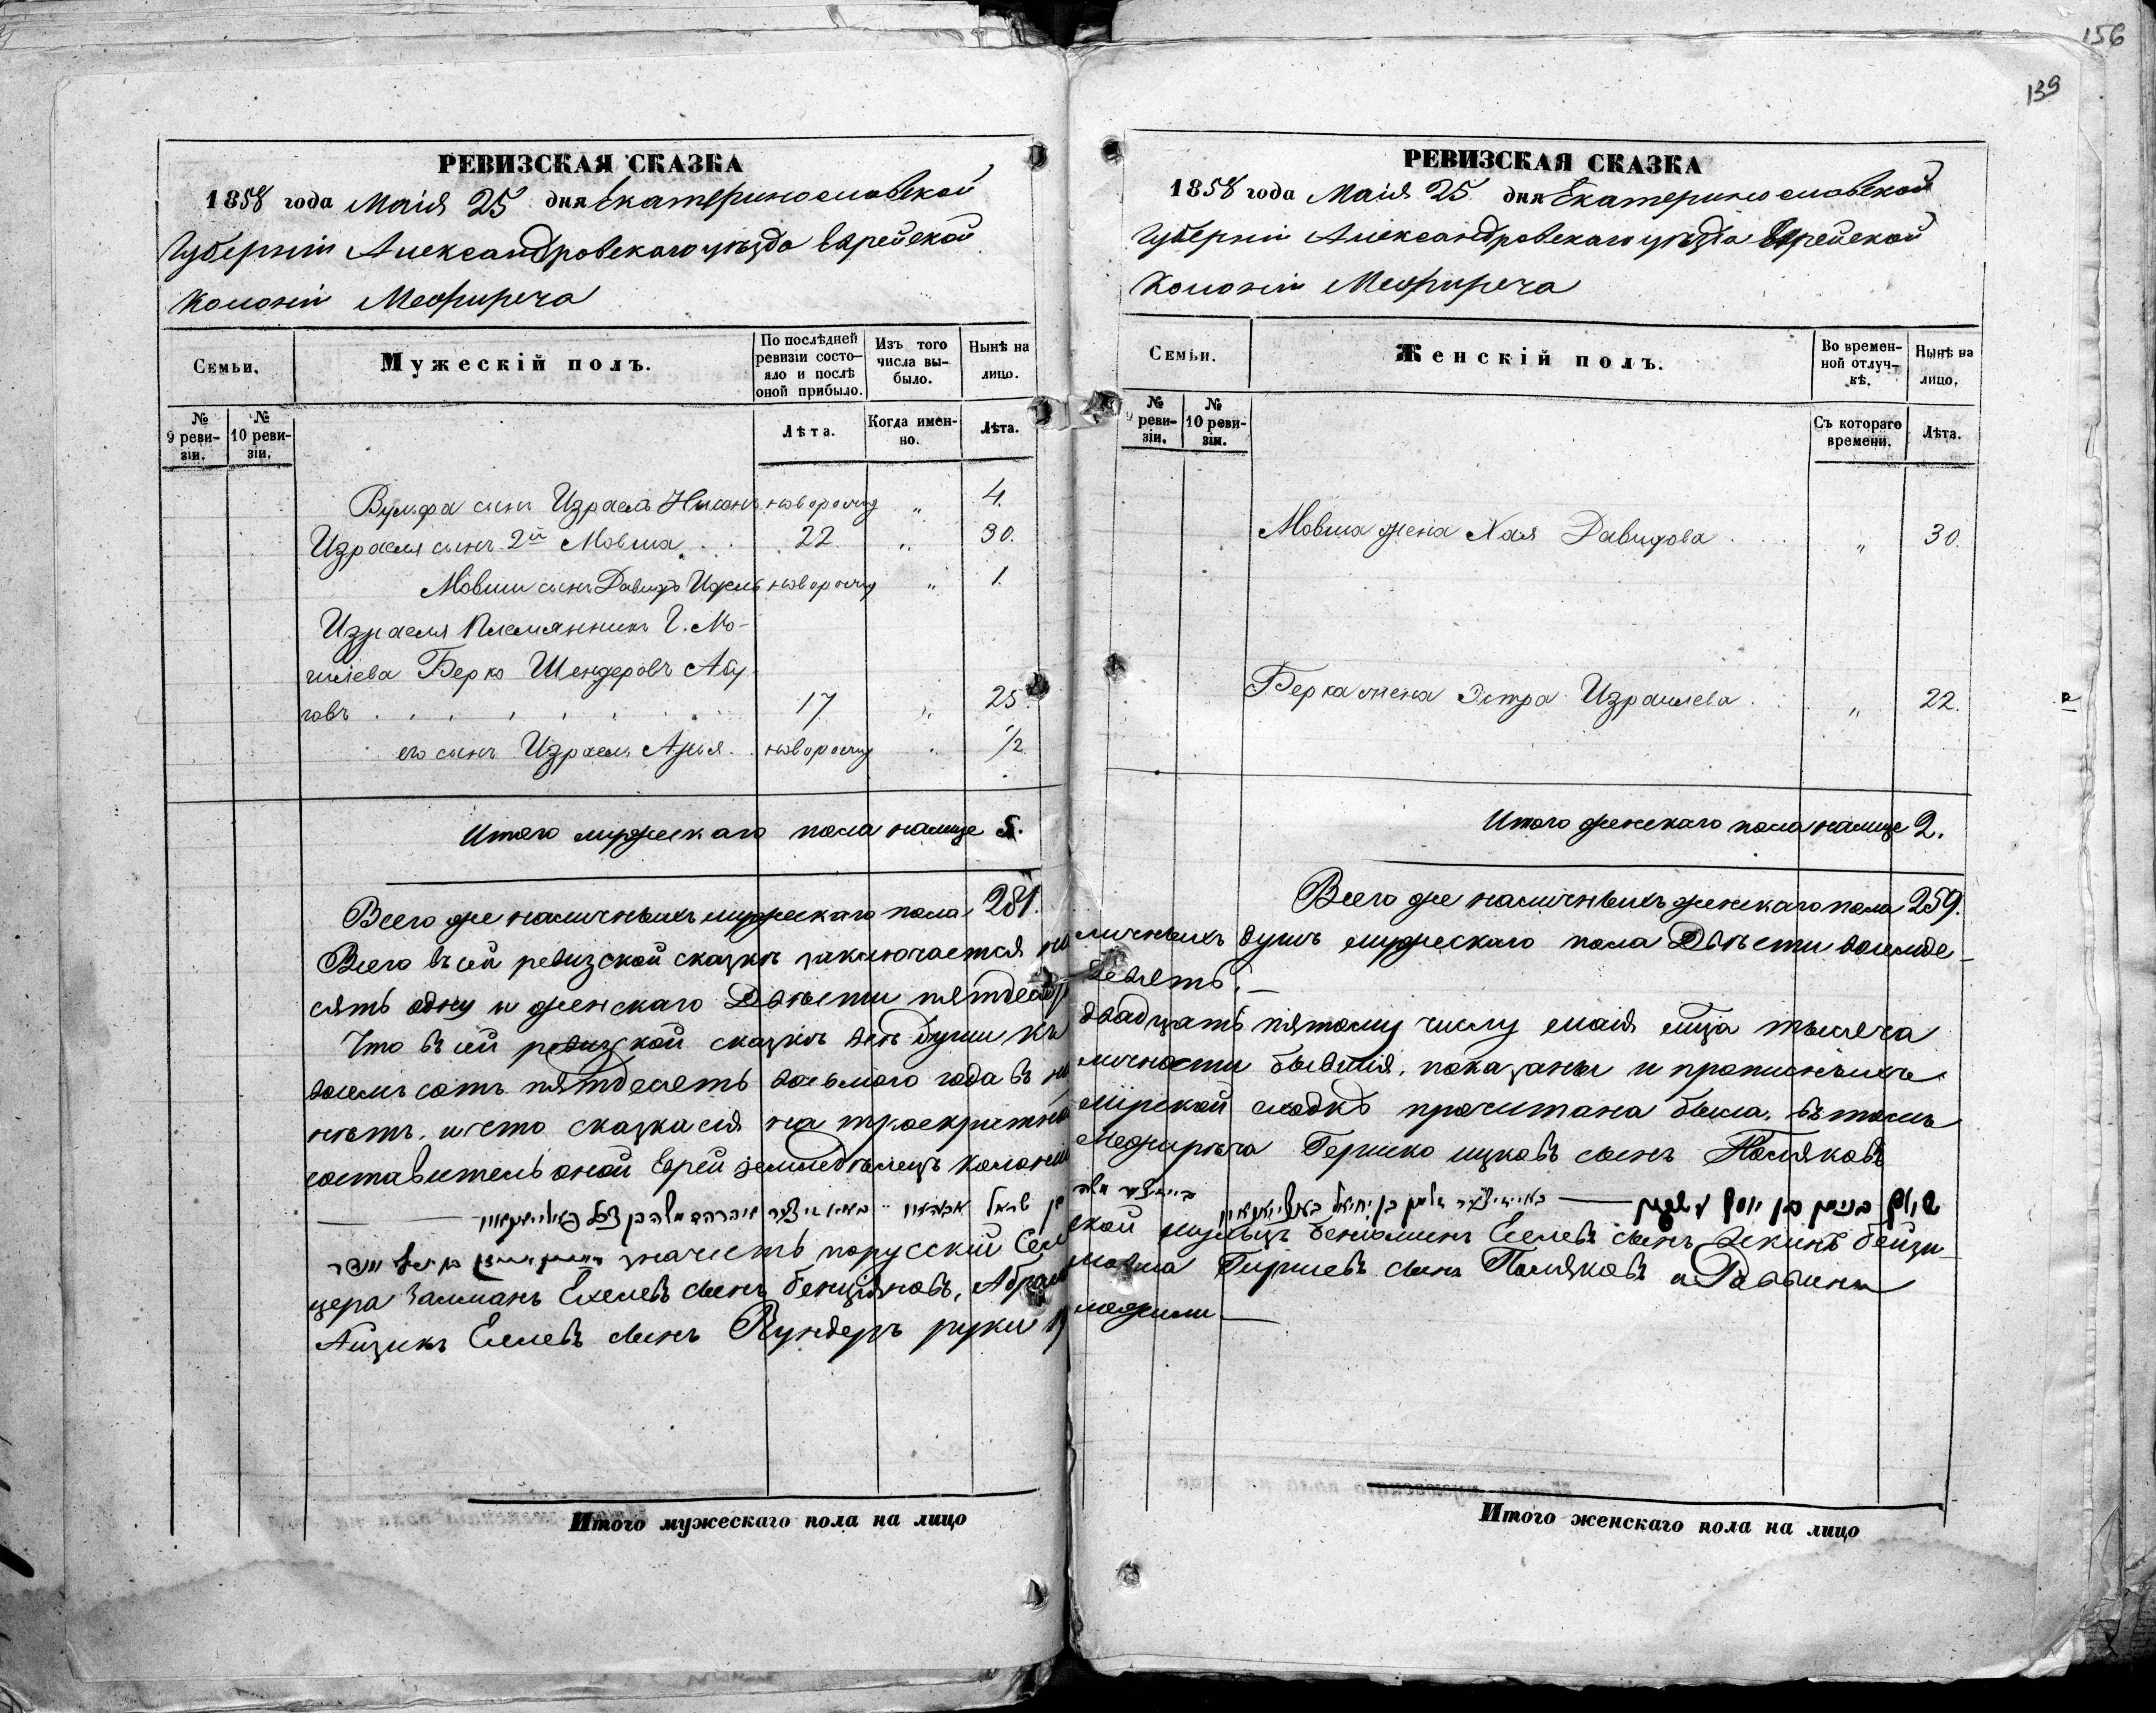 156
139
РЕВИЗСКАЯ СКАЗКА
1858 года Маія 25 дня Екатеринославской
Губерніи Александровскаго уѣзда Еврейской
Колоніи Межиреча
Семьи.
Мужескій полъ.
По послѣдней ревизіи состояло и послѣ оной прибыло.
Изъ того числа выбыло.
Нынѣ на лицо.
№ 9 ревизіи.
№ 10 ревизіи.
Лѣта.
Когда именно.
Лѣта.
Вульфа сынъ Израель Нисонъ новорожд " 4.
Израеля сынъ 2й Мовша 22 " 30.
Мовши сынъ Давидъ Ицель новорожд " 1.
Израеля Племянникъ Г. Мо-
гилева Берко Шендеровъ Абу-
говъ 17 " 25
его сынъ Израель Арья новорожд " 1/2
Итого мужескаго пола налице 5.
Всего же наличныхъ мужескаго пола 281.
Всего въ сей ревизской сказкѣ заключается на
сять одну и женскаго Двѣсти пятдесятъ
Что въ сей ревизской сказкѣ всѣ души къ
восемь сотъ пятдесятъ восьмаго года въ на
нѣтъ. и что сказка сія на троекратно
составитель оной Еврей земледѣлецъ колоніи
значитъ порусски
цера Залманъ Ехелевъ сынъ Бенціяновъ, Абрам
Айзикъ Еселевъ сынъ Кундеръ руки п
Итого мужескаго пола на лицо
РЕВИЗСКАЯ СКАЗКА
1858 года Маія 25 дня Екатеринославской
Губерніи Александровскаго уѣзда Еврейской
Колоніи Межиреча
Семьи.
Женскій полъ.
Во временной отлучкѣ.
Нынѣ на лицо.
№ 9 ревизіи.
№ 10 ревизіи.
Съ котораго времени.
Лѣта.
Мовша жена Хая Давидова " 30.
Берка жена Эстра Израилева " 22.
Итого женскаго пола налице 2.
Всего же наличныхъ женскаго пола 259.
личныхъ душъ мужескаго пола Двѣсти восемде-
девять.
двадцать пятому числу маія мца тысяча
личности бывшія, показаны и прописныхъ
мірской сходкѣ прочитана была, въ томъ
Межирѣча Гершко Ицковъ сынъ Поляковъ
ской Беніоминъ Еселевъ сынъ
Гиршевъ сынъ Поляковъ и Раввинъ
ложили
Итого женскаго пола на лицо